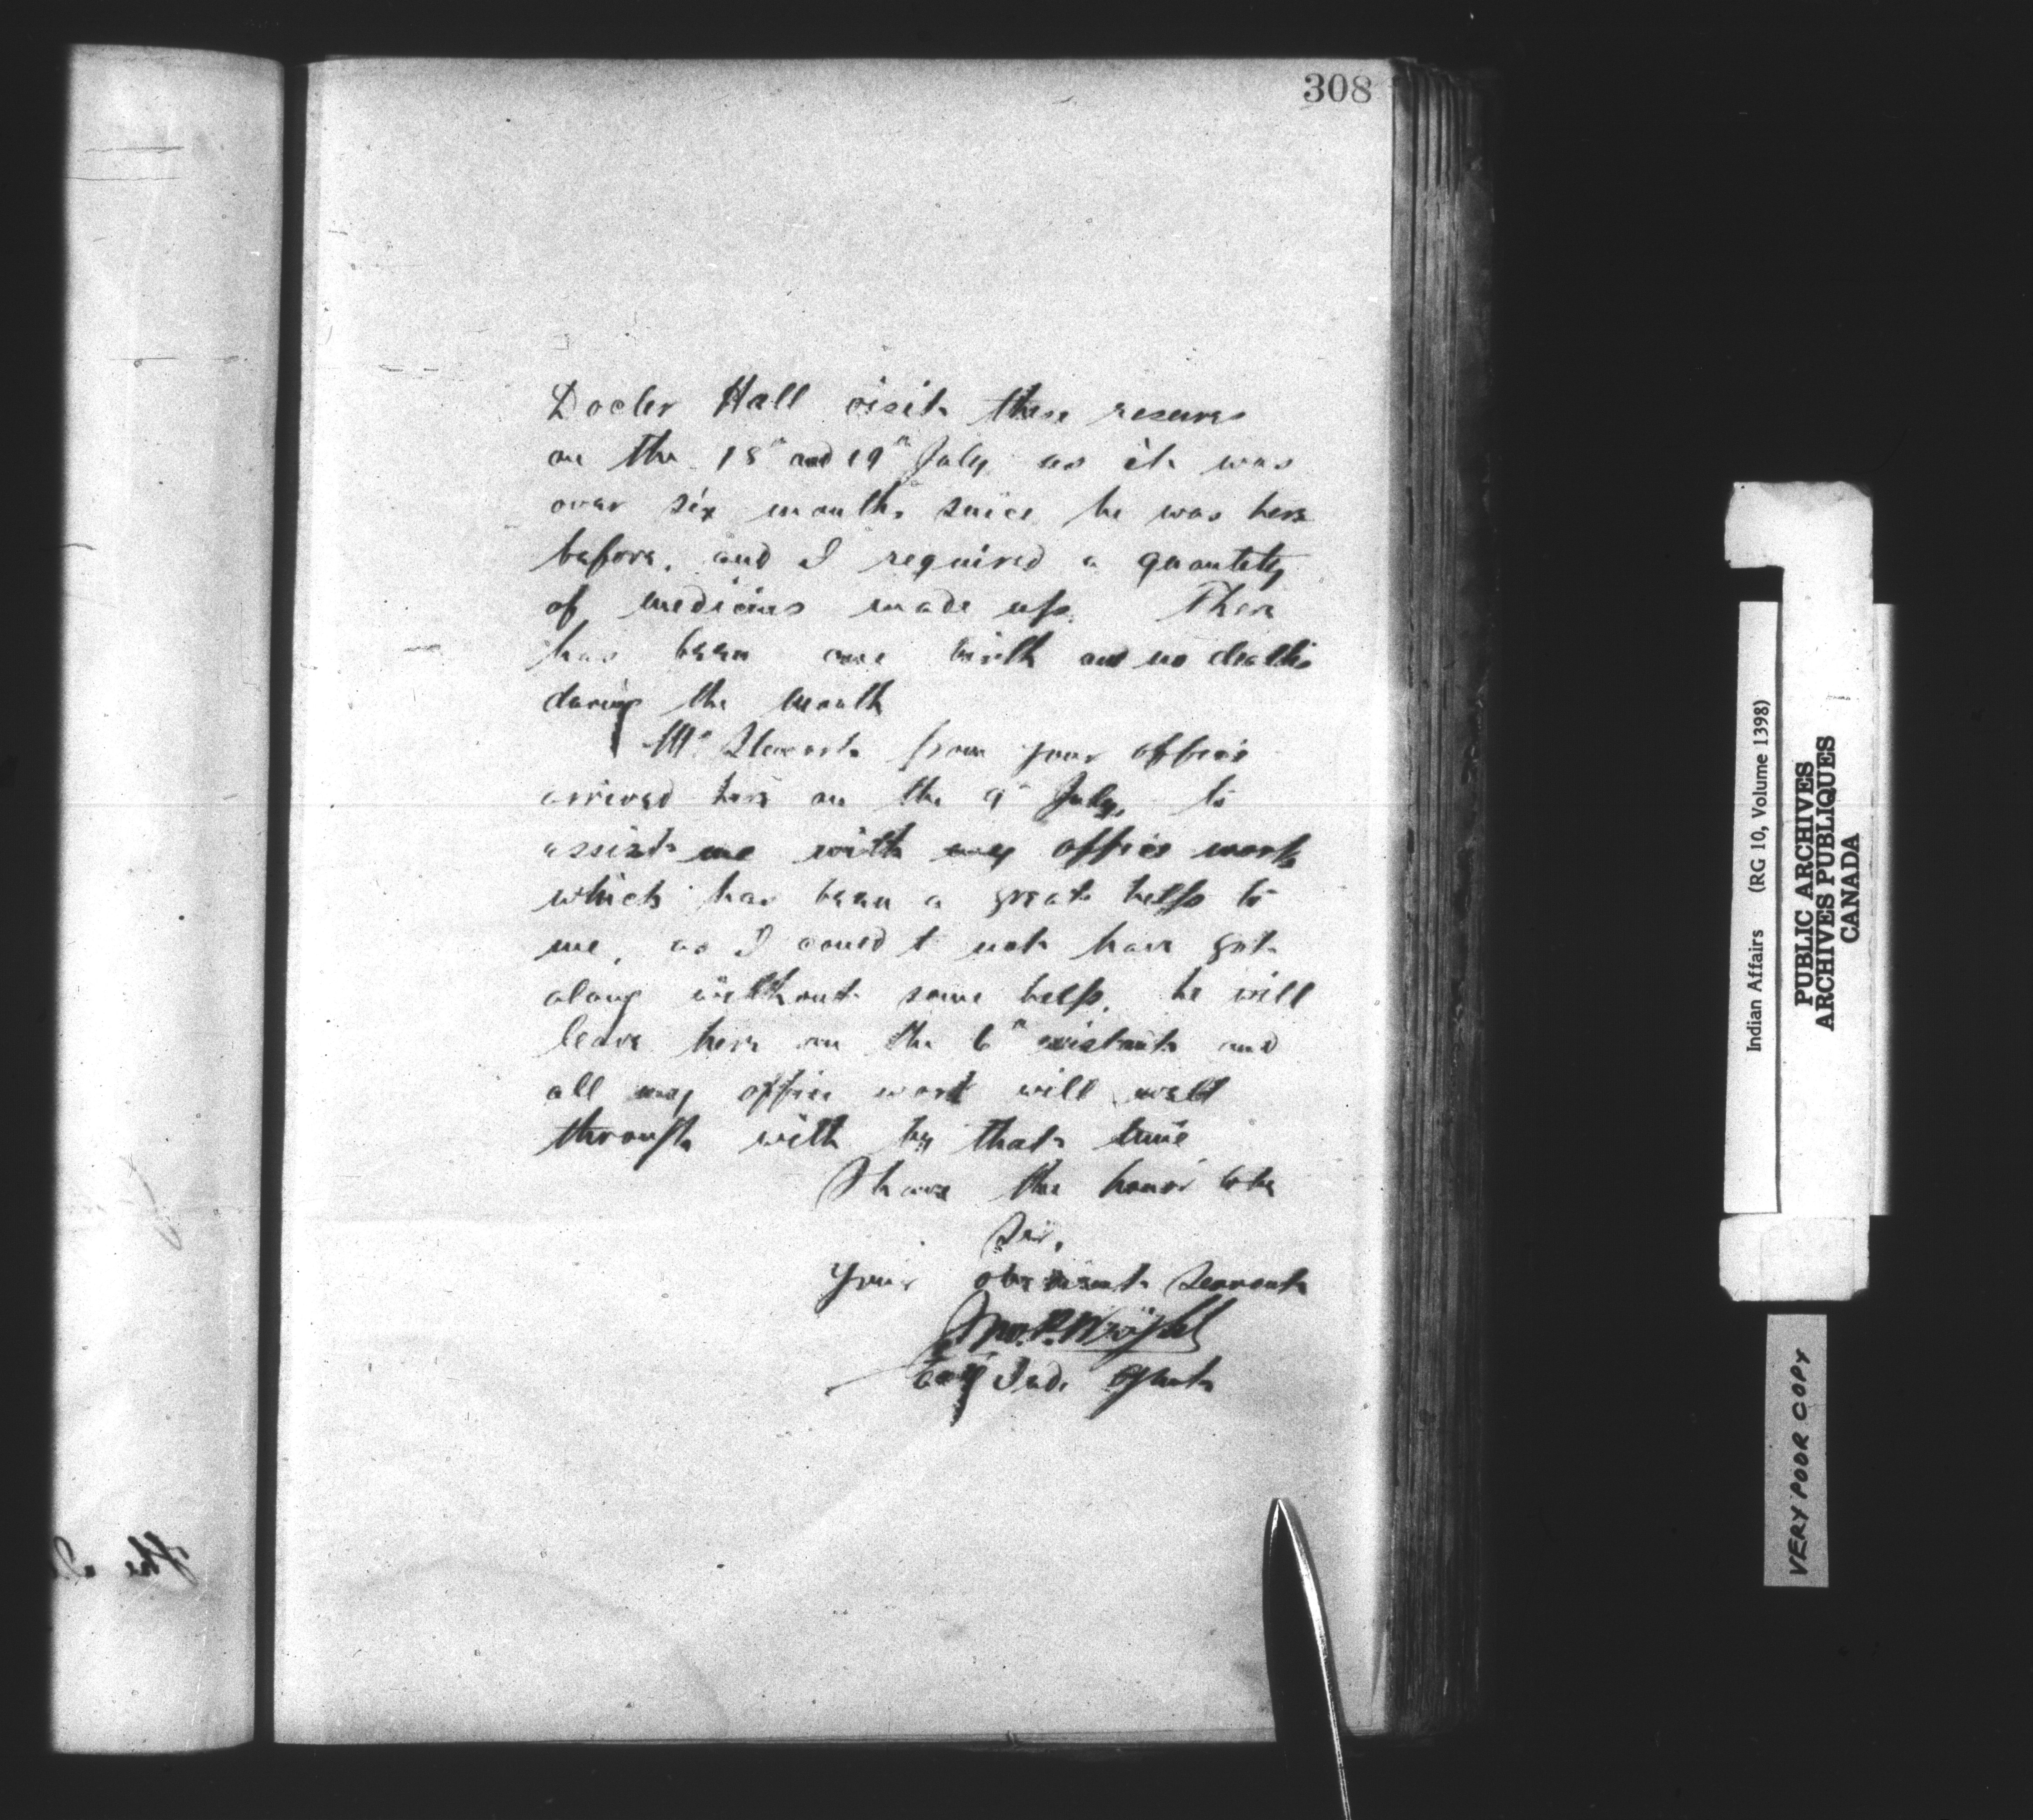 308
Docter Hall visit these reserves
on the 18th and 19th July, as it was
over six months since he was here
before, and I required a quantity
of medicines made up. There
has been one birth and no deaths
during the month
Mr Stewart from your office
arrived here on the 9th July, to
assist me with my office work
which has been a great help to
me, as I could not have got
along without some help. he will
leave here on the 6th instant and
all my office work will well
through with by that time
I have the honor to be
Sir,
Your obedient Servant
Jno. P. Wright
Ind. Agent
The
Indian Affairs (RG 10, Volume 1398)
PUBLIC ARCHIVES
ARCHIVES PUBLIQUES
CANADA
VERY POOR COPY